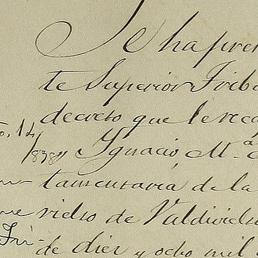 Se ha pre
te Superior Trib
decreto que le reca
o. 14
/838 y Ygnacio, M.ª
tamentaria de la
rielso de Valdiviels
de diez y ocho mil